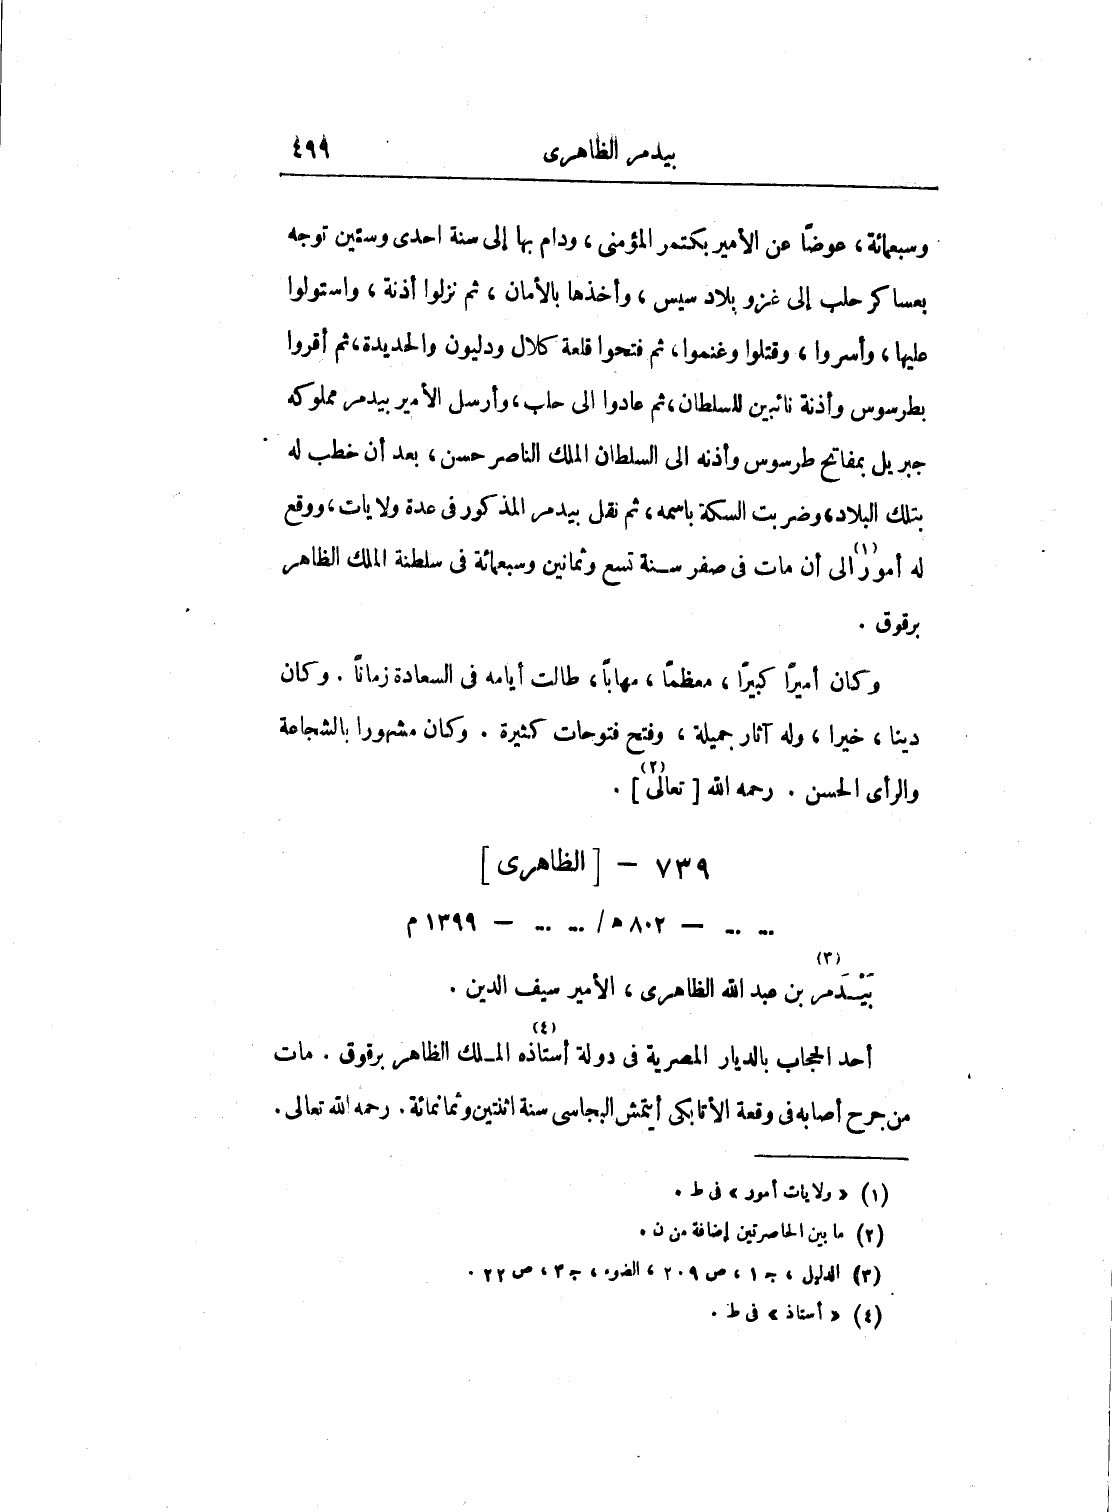 بيدمر الظاهرى ٤٩٩
وسبعمائة ، عوضًا عن الأمير بكتمر المؤمنى ، ودام بها إلى سنة احدى وستين توجه
بعساكر حلب إلى غزو بلاد سيس ، وأخذها بالأمان ، ثم نزلوا أذنة ، واستولوا
عليها ، وأسروا ، وقتلوا وغنموا ، ثم فتحوا قلعة كلال ودليون والحديدة ، ثم أقروا
بطرسوس وأذنة نائبين للسلطان ، ثم عادوا الى حلب ، وأرسل الأمير بيدمر مملوكه
جبريل بمفاتيح طرسوس وأذنه الى السلطان الملك الناصر حسن ، بعد أن خطب له
بتلك البلاد ، وضربت السكة باسمه ، ثم نقل بيدمر المذكور فى عدة ولايات ، ووقع
له أمور (١) الى أن مات فى صفر سنة تسع وثمانين وسبعمائة فى سلطنة الملك الظاهر
برقوق .
وكان أميرًا كبيرًا ، معظمًا ، مهابًا ، طالت أيامه فى السعادة زمانًا . وكان
دينا ، خيرا ، وله آثار جميلة ، وفتح فتوحات كثيرة . وكان مشهورا بالشجاعة
والرأى الحسن . رحمه الله [ تعالى (٢) ] .
٧٣٩ – [ الظاهرى ]
... ... – ٨٠٢ ه / ... ... – ١٣٩٩ م
بَيْدَمر (٣) بن عبد الله الظاهرى ، الأمير سيف الدين .
أحد الحجاب بالديار المصرية فى دولة أستاذه (٤) الملك الظاهر برقوق . مات
من جرح أصابه فى وقعة الأتابكى أيتمش البجاسى سنة اثنتين وثمانمائة . رحمه الله تعالى .
(١) « ولايات أمور » فى ط .
(٢) ما بين الحاصرتين إضافة من ن .
(٣) الدليل ، ج ١ ، ص ٢٠٩ ، الضوء ، ج ٣ ، ص ٢٢ .
(٤) « أستاذ » فى ط .